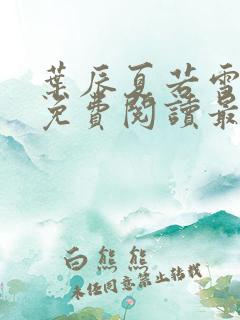 葉辰夏若雪
免費閱讀最
白熊熊
未經同意禁止轉載